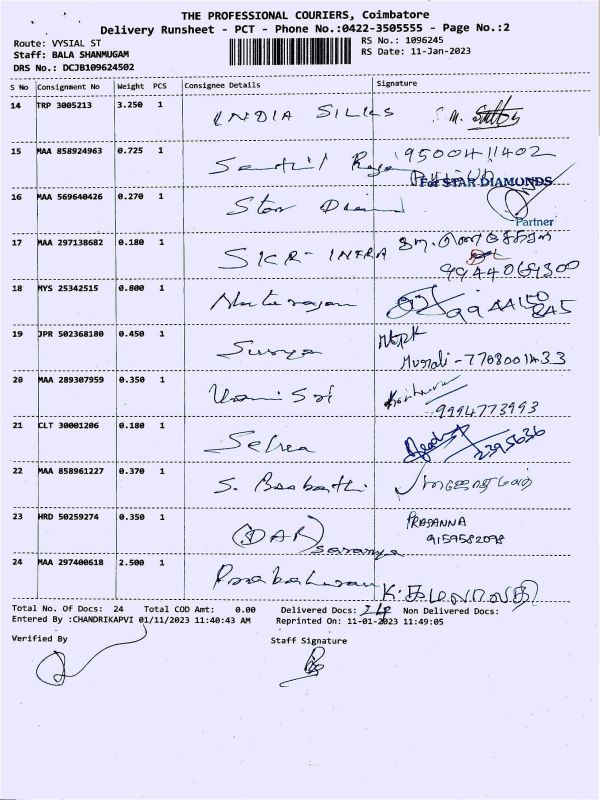 THE PROFESSIONAL COURIERS, Coimbatore
Delivery Runsheet - PCT - Phone No.:0422-3505555 - Page No.:2
Route: VYSIAL ST
RS No.: 1096245
Staff: BALA SHANMUGAM
RS Date: 11-Jan-2023
DRS No.: DCJB109624502
S No Consignment No Weight PCS Consignee Details Signature
14 TRP 3005213 3.250 1 INDIA SILKS S.M.
15 MAA 858924963 0.725 1 Senthil Raja 9500411402
For STAR DIAMONDS
16 MAA 569640426 0.270 1 Star
Partner
17 MAA 297138682 0.180 1 INFRA
18 MYS 25342515 0.800 1 Natarajan
19 JPR 502368180 0.450 1 Surya
Murali - 7708001433
20 MAA 289307959 0.350 1 Sri
9994773993
21 CLT 30001206 0.180 1 2395636
22 MAA 858961227 0.370 1 S.
23 HRD 50259274 0.350 1 (DAR) saranya PRASANNA
9159582098
24 MAA 297400618 2.500 1 Prabakaran K.
Total No. Of Docs: 24 Total COD Amt: 0.00 Delivered Docs: 24 Non Delivered Docs:
Entered By :CHANDRIKAPVI 01/11/2023 11:40:43 AM Reprinted On: 11-01-2023 11:49:05
Verified By Staff Signature